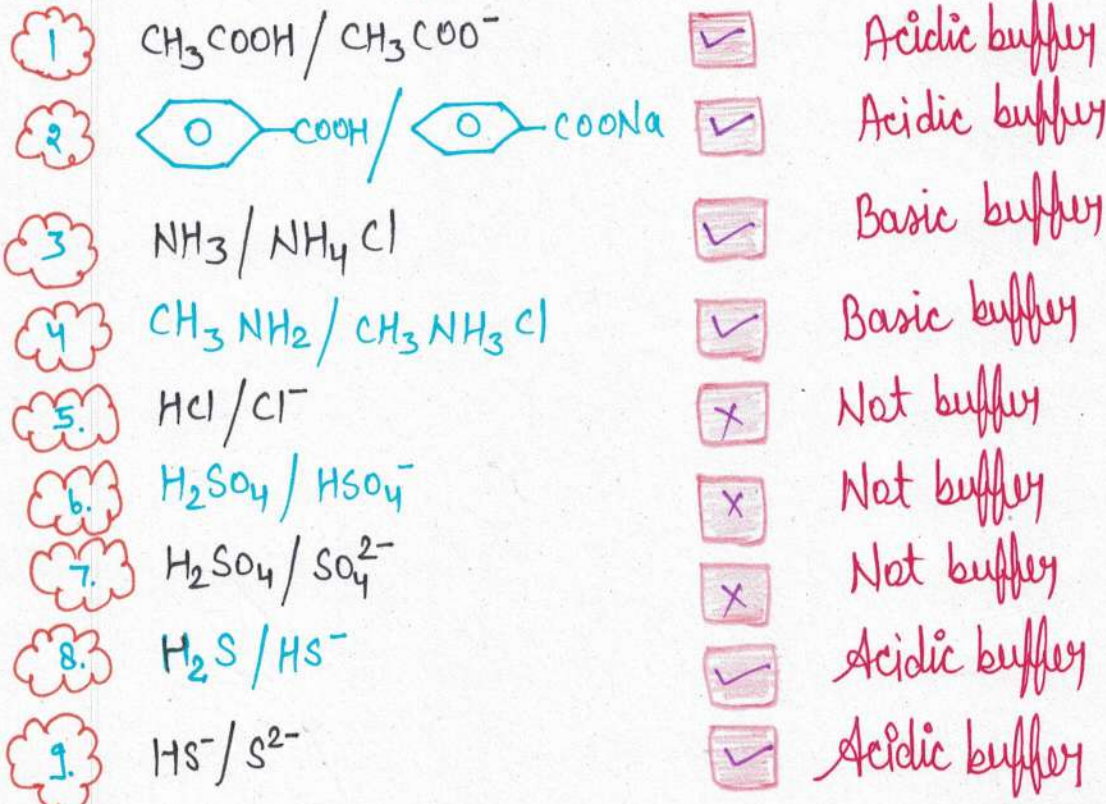 1 CH₃COOH / CH₃COO⁻ ✓ Acidic buffer
2 COOH / COONa ✓ Acidic buffer
3 NH₃ / NH₄Cl ✓ Basic buffer
4 CH₃NH₂ / CH₃NH₃Cl ✓ Basic buffer
5. HCl / Cl⁻ × Not buffer
6. H₂SO₄ / HSO₄⁻ × Not buffer
7. H₂SO₄ / SO₄²⁻ × Not buffer
8. H₂S / HS⁻ ✓ Acidic buffer
9. HS⁻ / S²⁻ ✓ Acidic buffer